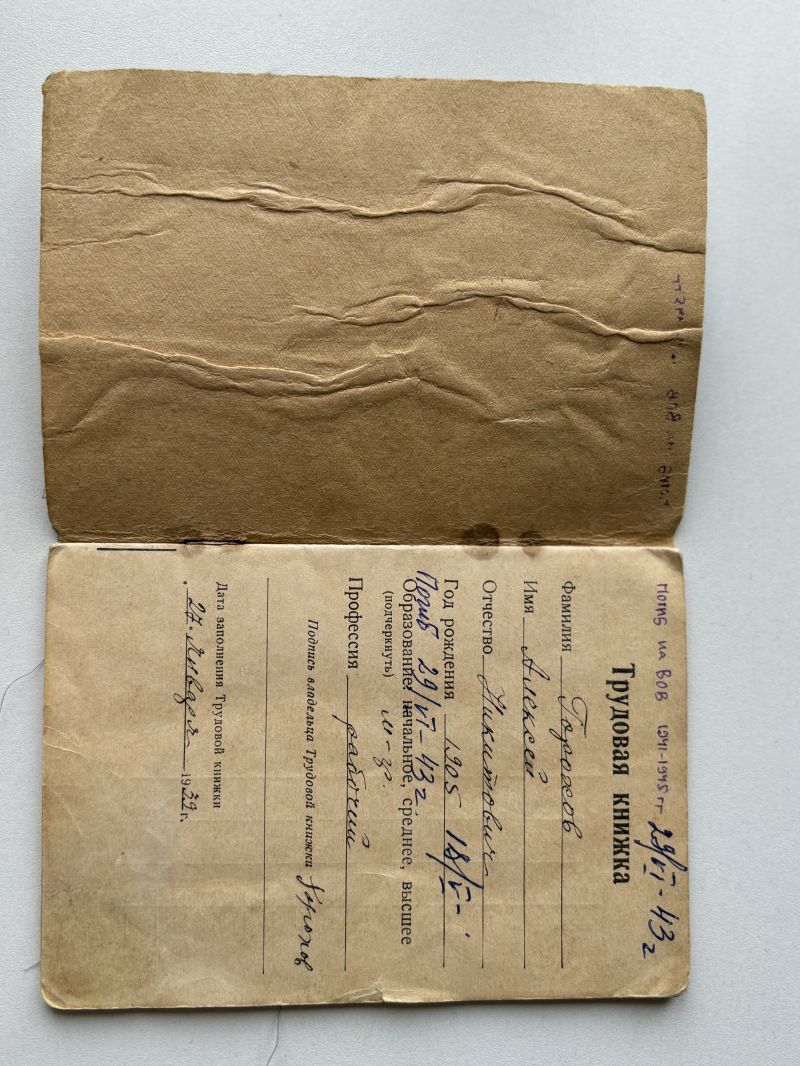 погиб на ВОВ 1941-1945 гг 29/VI-43 г
Трудовая книжка
Фамилия Горохов
Имя Алексей
Отчество Никитович
Год рождения 1905 18/V-
Погиб 29/VI-43 г.
Образование: начальное, среднее, высшее
(подчеркнуть)
Профессия рабочий
Подпись владельца Трудовой книжки Горохов
Дата заполнения Трудовой книжки
27. Января 1939 г.